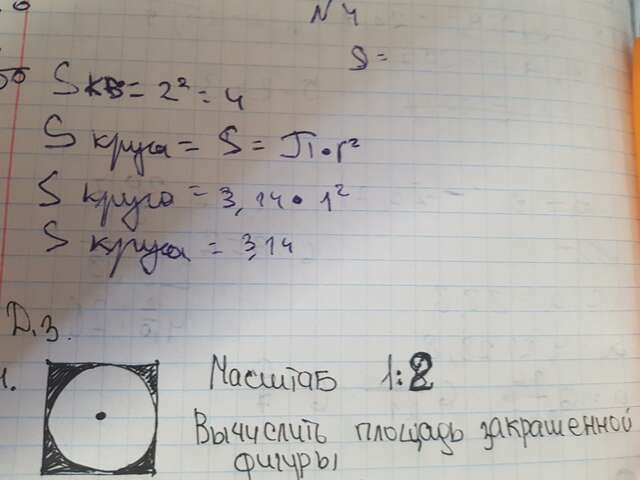 N 4
S =
S кв = 2² = 4
S круга = S = П · r²
S круга = 3,14 · 1²
S круга = 3,14
Д.З.
1.
Масштаб 1:2
Вычислить площадь закрашенной
фигуры